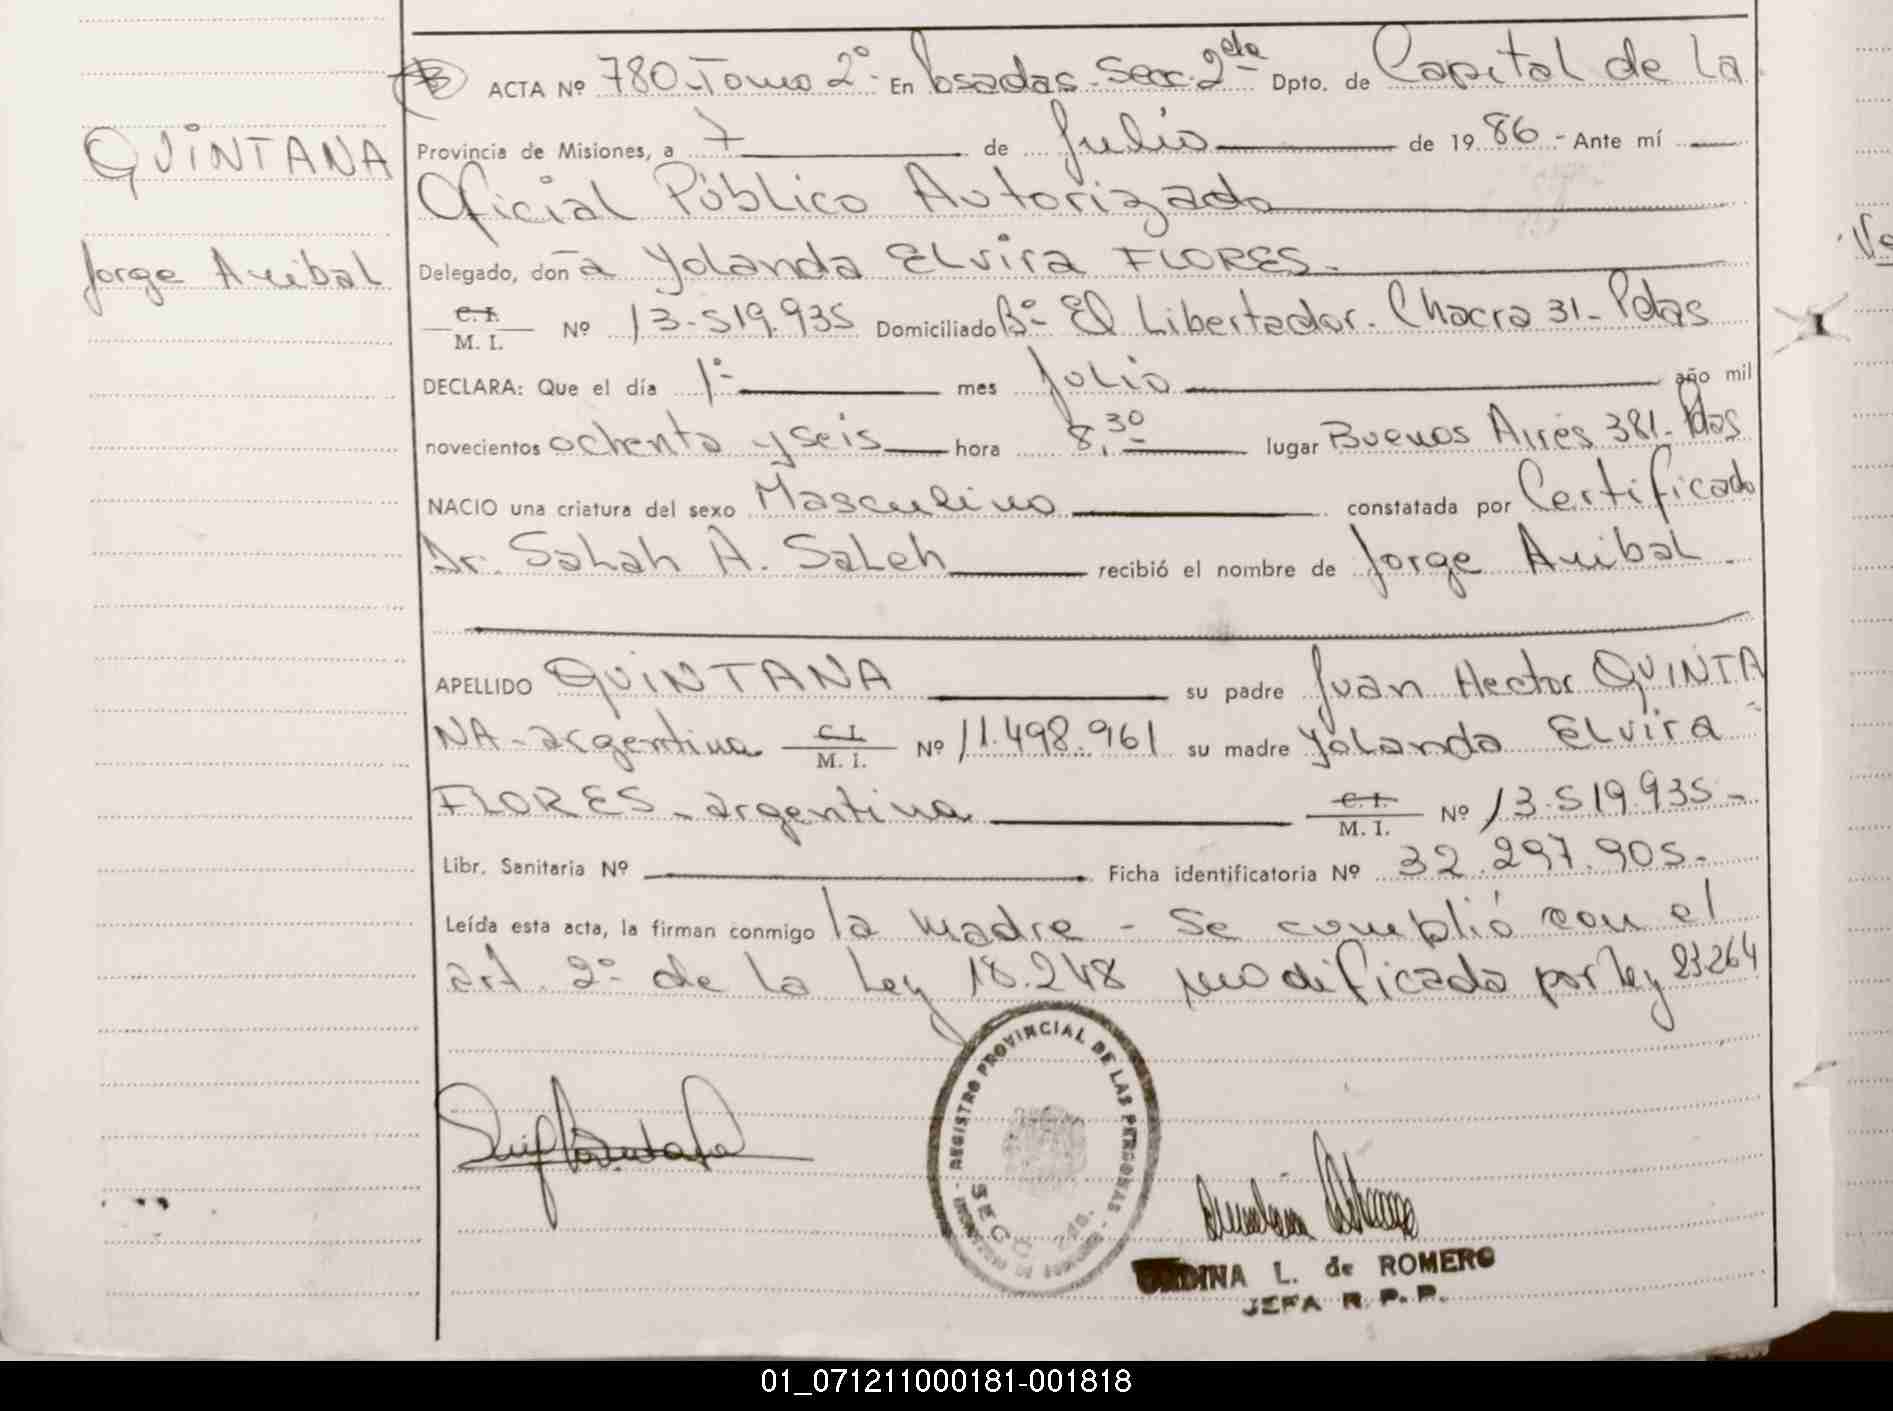 ACTA Nº 780-Tomo 2º- En Posadas-Secc. 2da Dpto. de Capital de La
QUINTANA
Provincia de Misiones, a 7 de Julio de 19 86 - Ante mí
Oficial Público Autorizado
Jorge Anibal
Delegado, don a Yolanda Elvira FLORES.
C. I.
M. I. Nº 13.519.935 Domiciliado Bº El Libertador. Chacra 31- Pdas
DECLARA: Que el día 1º mes Julio año mil
novecientos ochenta y seis hora 8,30 lugar Buenos Aires 381- Pdas
NACIO una criatura del sexo Masculino constatada por Certificado
Dr. Salah A. Saleh recibió el nombre de Jorge Anibal
APELLIDO QUINTANA su padre Juan Hector QUINTA
NA-argentina C. I. M. I. Nº 11.498.961 su madre Yolanda Elvira
FLORES-argentina C. I. M. I. Nº 13.519.935-
Libr. Sanitaria Nº Ficha identificatoria Nº 32.297.905-
Leída esta acta, la firman conmigo la madre - Se cumplió con el
art. 2º de la Ley 18.248 modificada por ley 23264
REGISTRO PROVINCIAL DE LAS PERSONAS
SECC. 2da.
L. de ROMERO
JEFA R. P. P.
01_071211000181-001818